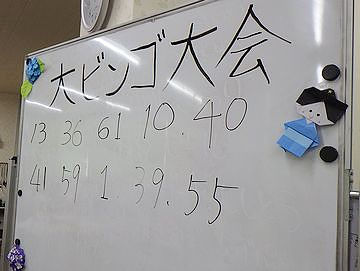 大ビンゴ大会
13 36 61 10. 40
41 59 1. 39. 55